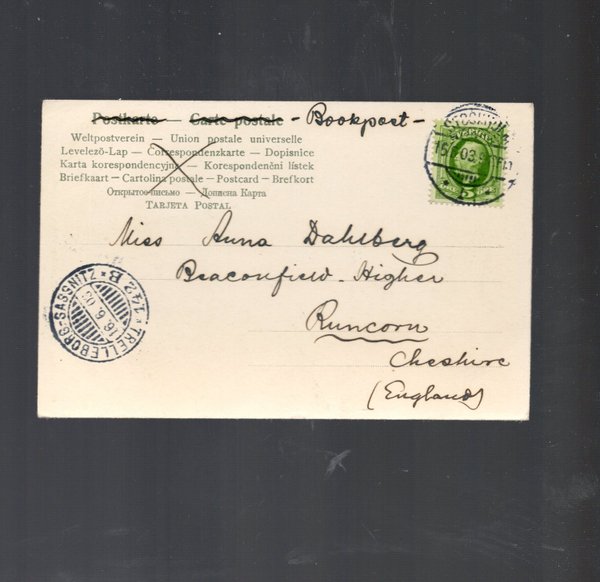 Postkarte — Carte postale - Bookpost -
Weltpostverein — Union postale universelle
Levelező-Lap — Correspondenzkarte — Dopisnice
Karta korespondencyjna — Korespondenční lístek
Briefkaart — Cartolina postale — Postcard — Brefkort
Открытое письмо — Дописна Карта
Tarjeta Postal
SVERIGE
Miss Anna Dahlberg
Beaconfield. Higher
Runcorn
Cheshire
(England)
TRELLEBORG-SASSNITZ * 142 B *
16. 6. 03